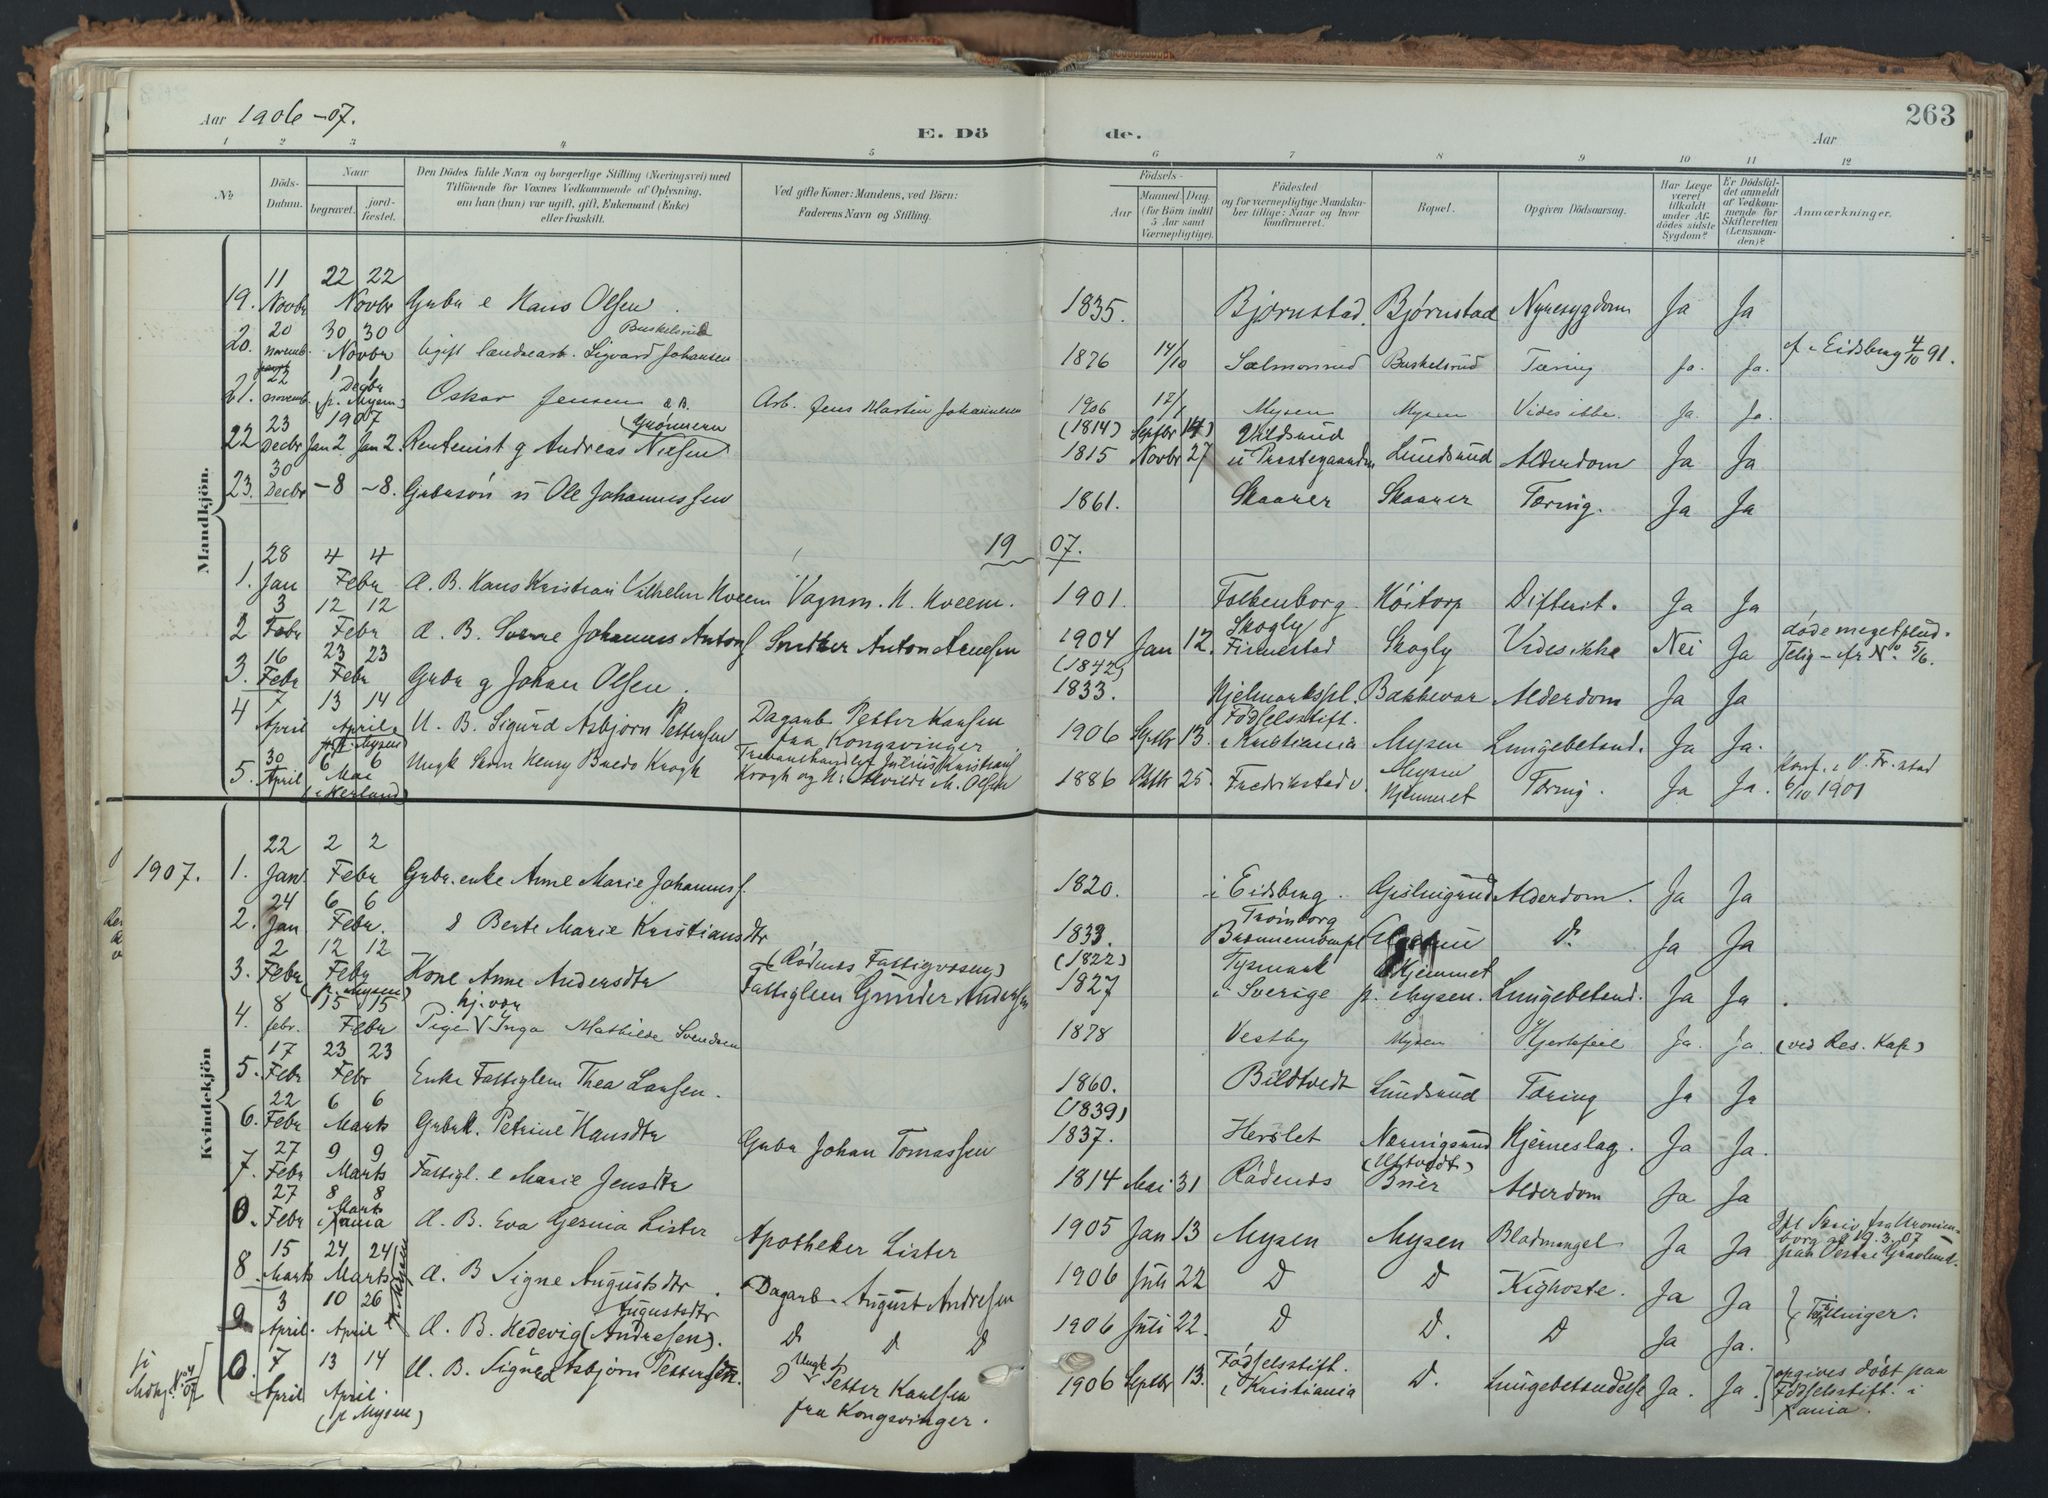 263
Aar 1906-07.
E. Dö de.
Aar
1 2 3 4 5 6 7 8 9 10 11 12
No. Döds-Datum. Naar begravet. jord-fæstet. Den Dödes fulde Navn og borgerlige Stilling (Næringsvei) med Tilföiende for Voxnes Vedkommende af Oplysning, om han (hun) var ugift, gift, Enkemand (Enke) eller fraskilt. Ved gifte Koner: Mandens, ved Börn: Faderens Navn og Stilling. Födsels- Aar Maaned. Dag. (for Börn indtil 5 Aar samt Værnepligtige). Födested og for værnepligtige Mandska-ber tillige: Naar og hvor konfirmeret. Bopæl. Opgiven Dödsaarsag. Har Læge været tilkaldt under Af-dödes sidste Sygdom? Er Dödsfal-det anmeldt af Vedkom-mende for Skifteretten (Lensman-den)? Anmærkninger.
Mandkjön.
19. 11 Novbr 22 22 Novbr Gaardbr e Hans Olsen. 1835. Bjørnstad. Bjørnstad Nyresygdom Ja Ja
20. 20 novemb. 30 30 Novbr Ugift landearb. Sigvard Johansen Buskelsrud 1876 14/10 Salmonrud Buskelsrud Tæring Ja. Ja. f. Eidsberg 4/10 91.
21. 22 novemb. 1 1 Decbr (p. Mysen) Oskar Jensen Arb. Jens Martin Johannesen 1906 12/1 Mysen Mysen Vides ikke. Ja. Ja.
1907
22 23 Decbr Jan 2 Jan 2. Rentenist g Andreas Nilsen (1814) Septbr 14) 1815 Novbr 27 Lundsrud Alderdom Ja Ja
23. 30 Decbr -8 -8. Gubrsön u Ole Johannessen 1861. Skaaner Skaaner Tæring. Ja Ja
1907.
1. 28 Jan 4 4 Febr Æ. B. Hans Kristian Vilhelm Kveem Vagnm. H. Kveem. 1901. Falkenborg. Köitorp Difterit. Ja Ja
2 3 Febr 12 12 Febr Æ. B. Sverre Johannes Antons Smther Anton Arnesen 1904 Jan 12. Skogly Finnestad Skogly Vides ikke Nei Ja döde meget plud-selig
3. 16 Febr 23 23 Febr Gubr g Johan Olsen. (1842) 1833. Hjelmarkspl. Bakkevar Alderdom Ja Ja
4 7 April 13 14 April p. Mysen U. B. Sigurd Asbjörn Pettersen Dagarb Petter Karlsen fra Kongsvinger 1906 Septbr 13. Födselsstift. i Kristiania Mysen Lungebetænd. Ja Ja.
5. 30 April 6 6 Mai Ungk Skom Henry Bredo Krogh Trævarehandler Julius Kristian Krogh og H. Alvilde M. Olsen 1886 Oktbr 25. Fredrikstad v. Mysen Hjemmet Tæring. Ja Ja. Konf. i V. Fr.stad 6/10 1901
Kvindekjön
1907.
1. 22 Jan. 2 2 Febr Gubr. enke Anne Marie Johannes. 1820. i Eidsberg. Gislingrud Alderdom. Ja Ja
2. 24 Jan 6 6 Febr. Berte Marie Kristiansdtr 1833. Trömborg D. Ja Ja
3. 2 Febr 12 12 Febr (p. Mysen) Kone Anne Andersdtr (Rödenes Fattigvæsen) Fattiglem Gunder Andersen (1822) 1827 Tysmark i Sverige Hjemmet p. Mysen. Lungebetænd. Ja Ja
4. 8 febr. 15 15 Febr Pige Inga Mathilde Svendsen 1878 Vestby Mysen Hjertefeil Ja. Ja. (ved Res. Kap)
5. 17 Febr 23 23 Febr Enke Fattiglem Thea Larsen. 1860. Bildtvedt Lundsrud Tæring Ja Ja
6. 22 Febr 6 6 Marts Gubrk. Petrine Hansdtr Gubr Johan Tomassen (1839) 1837. Herslet Nærnigsrud Hjerneslag. Ja Ja.
7. 27 Febr 9 9 Marts Fattigl. e Marie Jensdtr 1814 Mai 31 Rödenes Alderdom Ja Ja
0. 27 Febr 8 8 Marts i Xania Æ. B. Eva Gerina Lister Apotheker Lister 1905 Jan 13 Mysen Mysen Blodmangel Ja Ja
8. 15 Marts 24 24 Marts p. Mysen Æ. B Signe Augustsdtr. Dagarb. August Andresen 1906 Juli 22 D D Kighoste. Ja Ja
9 3 April. 10 26 April Æ. B. Hedevig Augustsdtr (Andresen). D D D 1906 Juli 22. D D. D Ja Ja. } Tvillinger.
0. 7 April 13 14 April. (p Mysen) U. B. Sigurd Asbjörn Pettersen. Ungk Petter Karlsen fra Kongsvinger. 1906 Septbr 13. Födselsstift. i Kristiania D. Lungebetændelse Ja. Ja. opgives döbt paa Födselsstift. i Xania.